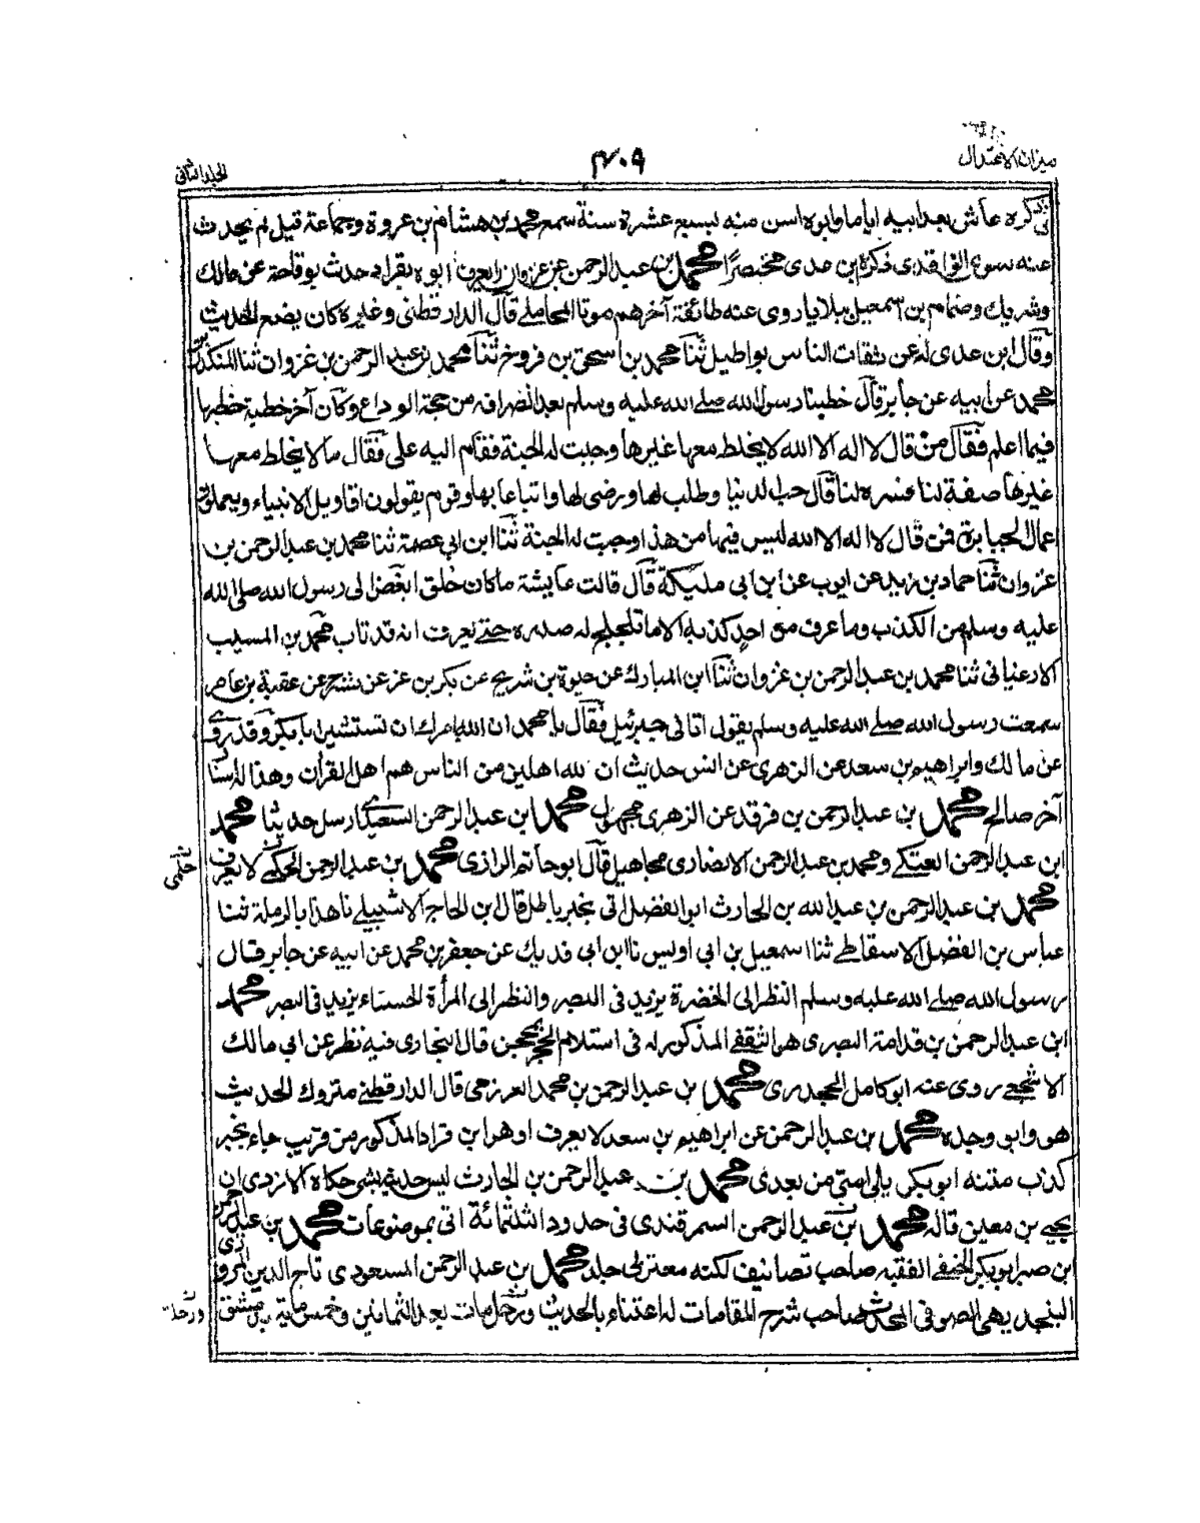 ميزان الاعتدال
٤٠٩
الجلد الثانى
ذكره عاش بعد ابيه اياما وابوه اسن منه بسبع عشرة سنة سمع محمد بن هشام بن عروة وجماعة قيل لم يحدث
عنه سوى الواقدى ذكره ابن عدى مختصرًا محمد بن عبد الرحمن بن غزوان ابوه بقراد حدث بوقاحة عن مالك
وشريك وضمام بن اسمعيل ببلايا روى عنه طائفة آخرهم موتا المحاملے قال الدارقطنى وغيره كان يضع الحديث
وقال ابن عدى له عن ثقات الناس بواطيل ثنا محمد بن اسحق بن فروخ ثنا محمد بن عبد الرحمن بن غزوان ثنا المنكدر بن
محمد عن ابيه عن جابر قال خطبنا رسول الله صلے الله عليه وسلم بعد انصرافه من حجة الوداع وكان آخر خطبة خطبها
فيما اعلم فقال من قال لا اله الا الله لا يخلط معها غيرها وجبت له الجنة فقام اليه على فقال ما لا يخلط معها
غيرها صفة لنا فسره لنا قال حب الدنيا وطلب لها ورضى لها واتباعا بها وقوم يقولون اقاويل الانبياء ويعملون
اعمال الجبابرة فمن قال لا اله الا الله ليس فيها من هذا وجبت له الجنة ثنا ابن ابي عصمة ثنا محمد بن عبد الرحمن بن
غزوان ثنا حماد بن زيد عن ايوب عن ابن ابى مليكة قال قالت عايشة ما كان خلق ابغض الى رسول الله صلى الله
عليه وسلم من الكذب وما عرف من احد كذبة الا ما تلجلج له صدره حتے يعرف انه قد تاب محمد بن المسيب
الارغيانى ثنا محمد بن عبد الرحمن بن غزوان ثنا ابن المبارك عن حيوة بن شريح عن بكر بن عمرو عن مشرح عن عقبة بن عامر
سمعت رسول الله صلے الله عليه وسلم يقول اتانى جبرئيل فقال يا محمد ان الله يامرك ان تستشير ابا بكر وقد روى
عن مالك وابراهيم بن سعد عن الزهرى عن انس حديث ان لله اهلين من الناس هم اهل القرأن وهذا له اسناد
آخر صالح محمد بن عبد الرحمن بن فرقد عن الزهرى مجهول محمد ابن عبد الرحمن السعيدى ارسل حديثا محمد
ابن عبد الرحمن العتكے ومحمد بن عبد الرحمن الانصارى مجاهيل قال ابو حاتم الرازى محمد بن عبد الرحمن الحكمے لا يعرف
محمد بن عبد الرحمن بن عبد الله بن الحارث ابو الفضل اتى بخبر باطل قال ابن الحاج الاشبيلے نا هذا بالرملة ثنا
عباس بن الفضل الاسقاطے ثنا اسمعيل بن ابى اويس نا ابن ابى فديك عن جعفر بن محمد عن ابيه عن جابر قال
رسول الله صلے الله عليه وسلم النظر الى الخضرة يزيد فى البصر والنظر الى المرأة الحسناء يزيد فى البصر محمد
ابن عبد الرحمن بن قدامة البصرى هو الثقفے المذكور له فى استلام الحجر بمحجن قال البخارى فيه نظر عن ابى مالك
الاشجعے روى عنه ابو كامل الجحدرى محمد بن عبد الرحمن بن محمد العرزمى قال الدارقطنے متروك الحديث
هو وابوه وجده محمد بن عبد الرحمن عن ابراهيم بن سعد لا يعرف او هو ابن قراد المذكور من قريب جاء بخبر
كذب متنه ابو بكر يلى امتى من بعدى محمد بن عبد الرحمن بن الحارث ليس حديثه بشئ حكاه الازدى ان
يحيے بن معين قاله محمد بن عبد الرحمن السمرقندى فى حدود الثلثمائة اتى بموضوعات محمد بن عبد الرحمن
ابن صبر ابو بكر الحنفے الفقيه صاحب تصانيف لكنه معتزلى جلد محمد بن عبد الرحمن المسعودى تاج الدين المروزى
البنجديهى الصوفى المحدث صاحب شرح المقامات له اعتناء بالحديث ورحل مات بعد الثمانين وخمس مائة بدمشق
ورحلة